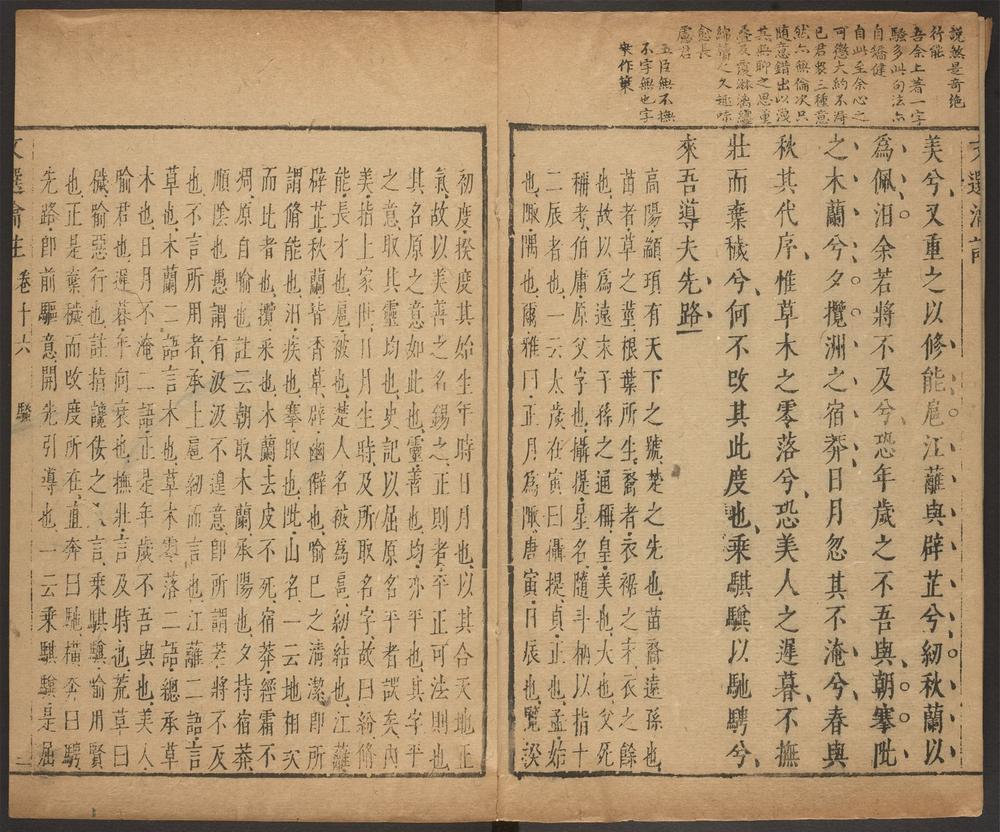 說煞是奇絶
行能
吾余上著一字
騷多此句法六
自播健
自此至余心之
可懲大約不海
已君衆三種意
然六無倫次只
随意錯出以漫
其無聊之思重
綿讀之久趣味
愈長
五臣無不撫
不字無也字
美兮又重之以修能扈江蘺與辟芷兮紉秋蘭以
爲佩汨余若將不及兮恐年歲之不吾與朝搴阰
之木蘭兮夕攬洲之宿莽日月忽其不淹兮春與
秋其代序惟草木之零落兮恐美人之遲暮不撫
壯而棄穢兮何不改其此度也乘騏驥以馳騁兮
來吾導夫先路
高陽顓頊有天下之號楚之先也苗裔遠孫也
苗者草之莖根葉所生裔者衣裾之末衣之餘
也故以爲遠末子孫之通稱皇美也大也父死
稱考伯庸原父字也攝提星名隨斗柄以指十
二辰者也一云太歲在寅曰攝提貞正也孟始
也陬隅也爾雅曰正月爲陬庚寅日辰也覽揆
初度揆度其始生年時日月也以其合天地正
氣故以美善之名錫之正則者平正可法則也
其名原之意如此也靈善也均亦平也其字平
之意取其靈均也史記以屈原名平者誤矣内
美指上家世日月生時及所取名字故曰紛脩
能長才也扈被也楚人名被爲扈紉結也江蘺
辟芷秋蘭皆香草辟幽僻也喻已之清潔即所
謂脩能也汨疾也搴取也阰山名一云地相次
而比者也攬采也木蘭去皮不死宿莽經霜不
凋原自喻也註云朝取木蘭承陽也夕持宿莽
順陰也愚謂有汲汲不遑意即所謂若將不及
也不言所用者承上扈紉而言也江蘺二語言
草也木蘭二語言木也草木零落二語總承草
木也日月不淹二語正是年歲不吾與也美人
喻君也遲暮年向衰也撫壯言及時也荒草曰
穢喻惡行也註指讒佞之言乘騏驥喻用賢
也正是棄穢而改度所在直奔曰馳橫奔曰騁
先路即前驅意開先引導也一云乘騏驥是屈
文選瀹註 卷十六 騷 一